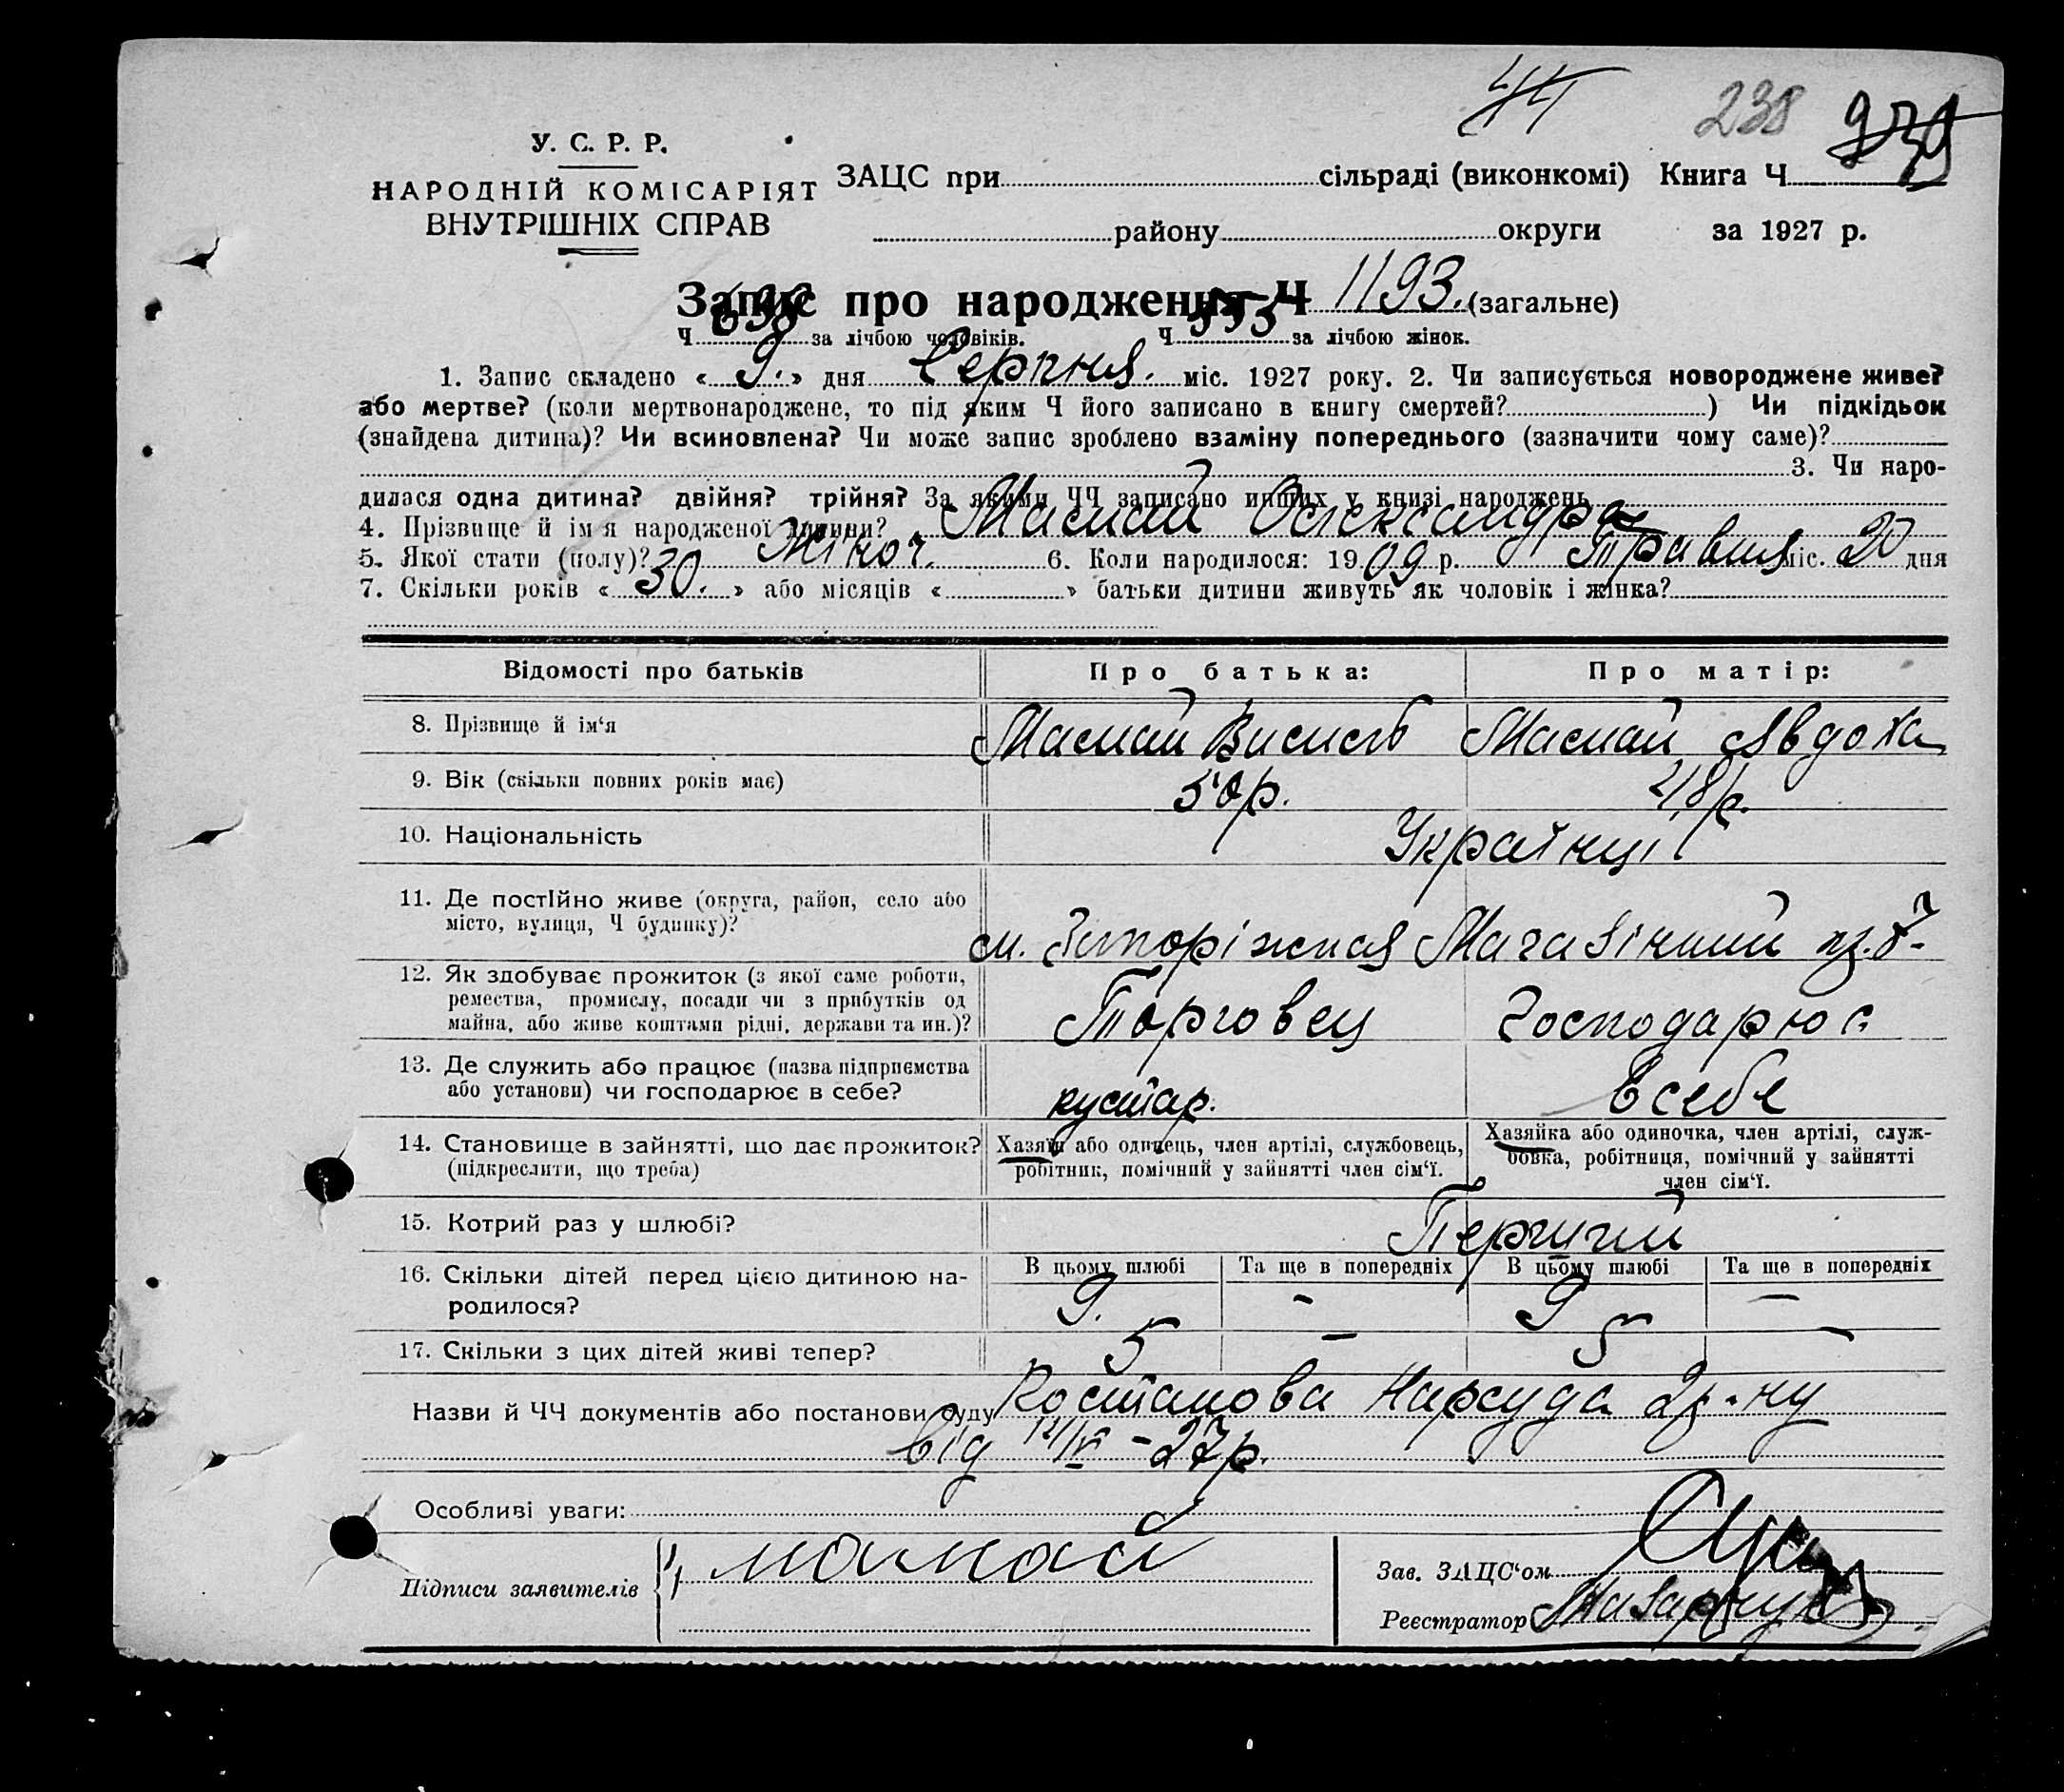 44
238 939
У. С. Р. Р.
НАРОДНІЙ КОМІСАРІЯТ
ВНУТРІШНІХ СПРАВ
ЗАЦС при сільраді (виконкомі) Книга Ч
району округи за 1927 р.
Запис про народження Ч 1193. (загальне)
Ч 638 за лічбою чоловіків. Ч 555 за лічбою жінок.
1. Запис складено « 9. » дня Серпня. міс. 1927 року. 2. Чи записується новороджене живе?
або мертве? (коли мертвонароджене, то під яким Ч його записано в книгу смертей? ) Чи підкідьок
(знайдена дитина)? Чи всиновлена? Чи може запис зроблено взаміну попереднього (зазначити чому саме)?
3. Чи наро-
дилася одна дитина? двійня? трійня? За якими ЧЧ записано инших у книзі народжень
4. Прізвище й ім'я народженої дитини? Мамай Олександра
5. Якої стати (полу)? Жіноч. 6. Коли народилося: 1909 р. Травня міс. 20 дня
7. Скільки років « 30. » або місяців « » батьки дитини живуть як чоловік і жінка?
Відомості про батьків Про батька: Про матір:
8. Прізвище й ім'я Мамай Мамай Явдоха
9. Вік (скільки повних років має) 50р. 48р.
10. Національність Українці
11. Де постійно живе (округа, район, село або
місто, вулиця, Ч будинку)? м. Запоріжжя
12. Як здобуває прожиток (з якої саме роботи,
ремества, промислу, посади чи з прибутків од
майна, або живе коштами рідні, держави та ин.)? Торговец Господарює
13. Де служить або працює (назва підприємства
або установи) чи господарює в себе? кустар. в себе
14. Становище в зайнятті, що дає прожиток?
(підкреслити, що треба)
Хазяїн або одинець, член артілі, службовець,
робітник, помічний у зайнятті член сім'ї.
Хазяйка або одиночка, член артілі, служ-
бовка, робітниця, помічний у зайнятті
член сім'ї.
15. Котрий раз у шлюбі? Перший
16. Скільки дітей перед цією дитиною на-
родилося?
В цьому шлюбі Та ще в попередніх В цьому шлюбі Та ще в попередніх
9. - 9 -
17. Скільки з цих дітей живі тепер? 5 - 5 -
Назви й ЧЧ документів або постанови суду Постанова Нарсуда 2р-ну
від -27р.
Особливі уваги:
Підписи заявителів мамай
Зав. ЗАЦС'ом
Реєстратор